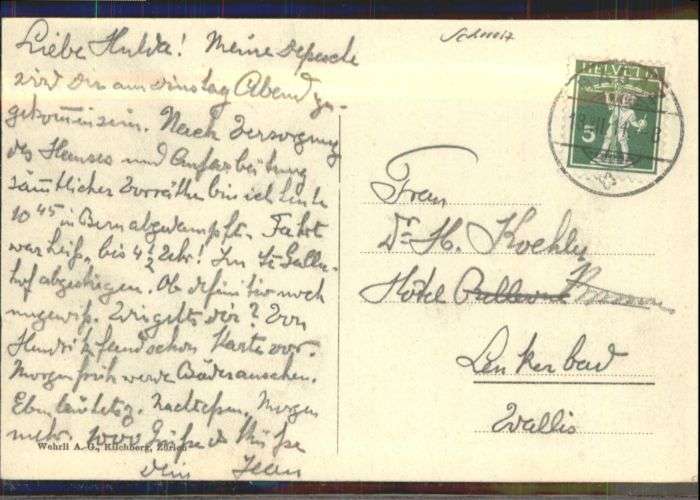 Schweiz
Liebe Hulda! Meine Depesche
wird Dir am Dinstag Abend zu-
gekommen sein. Nach Versorgung
des Hauses und Aufarbeitung
sämtlicher Vorräthe bin ich heute
10 45 in Bern abgedampft. Fahrt
war heiß, bis 4 1/2 Uhr! Im St. Galler-
hof abgestiegen. Ob definitiv noch
ungewiß. Wie gehts Dir? Von
Hendrik fand schon Karte vor.
Morgen früh werde Bäder anschen.
Eben läutets z. Nachtessen, Morgen
mehr. 1000 Grüße & Küße
Dein Jean
HELVETIA
5
Frau
Dr. H. Koehly
Hotel
Leukerbad
Wallis
Wehrli A.-G., Kilchberg, Zürich